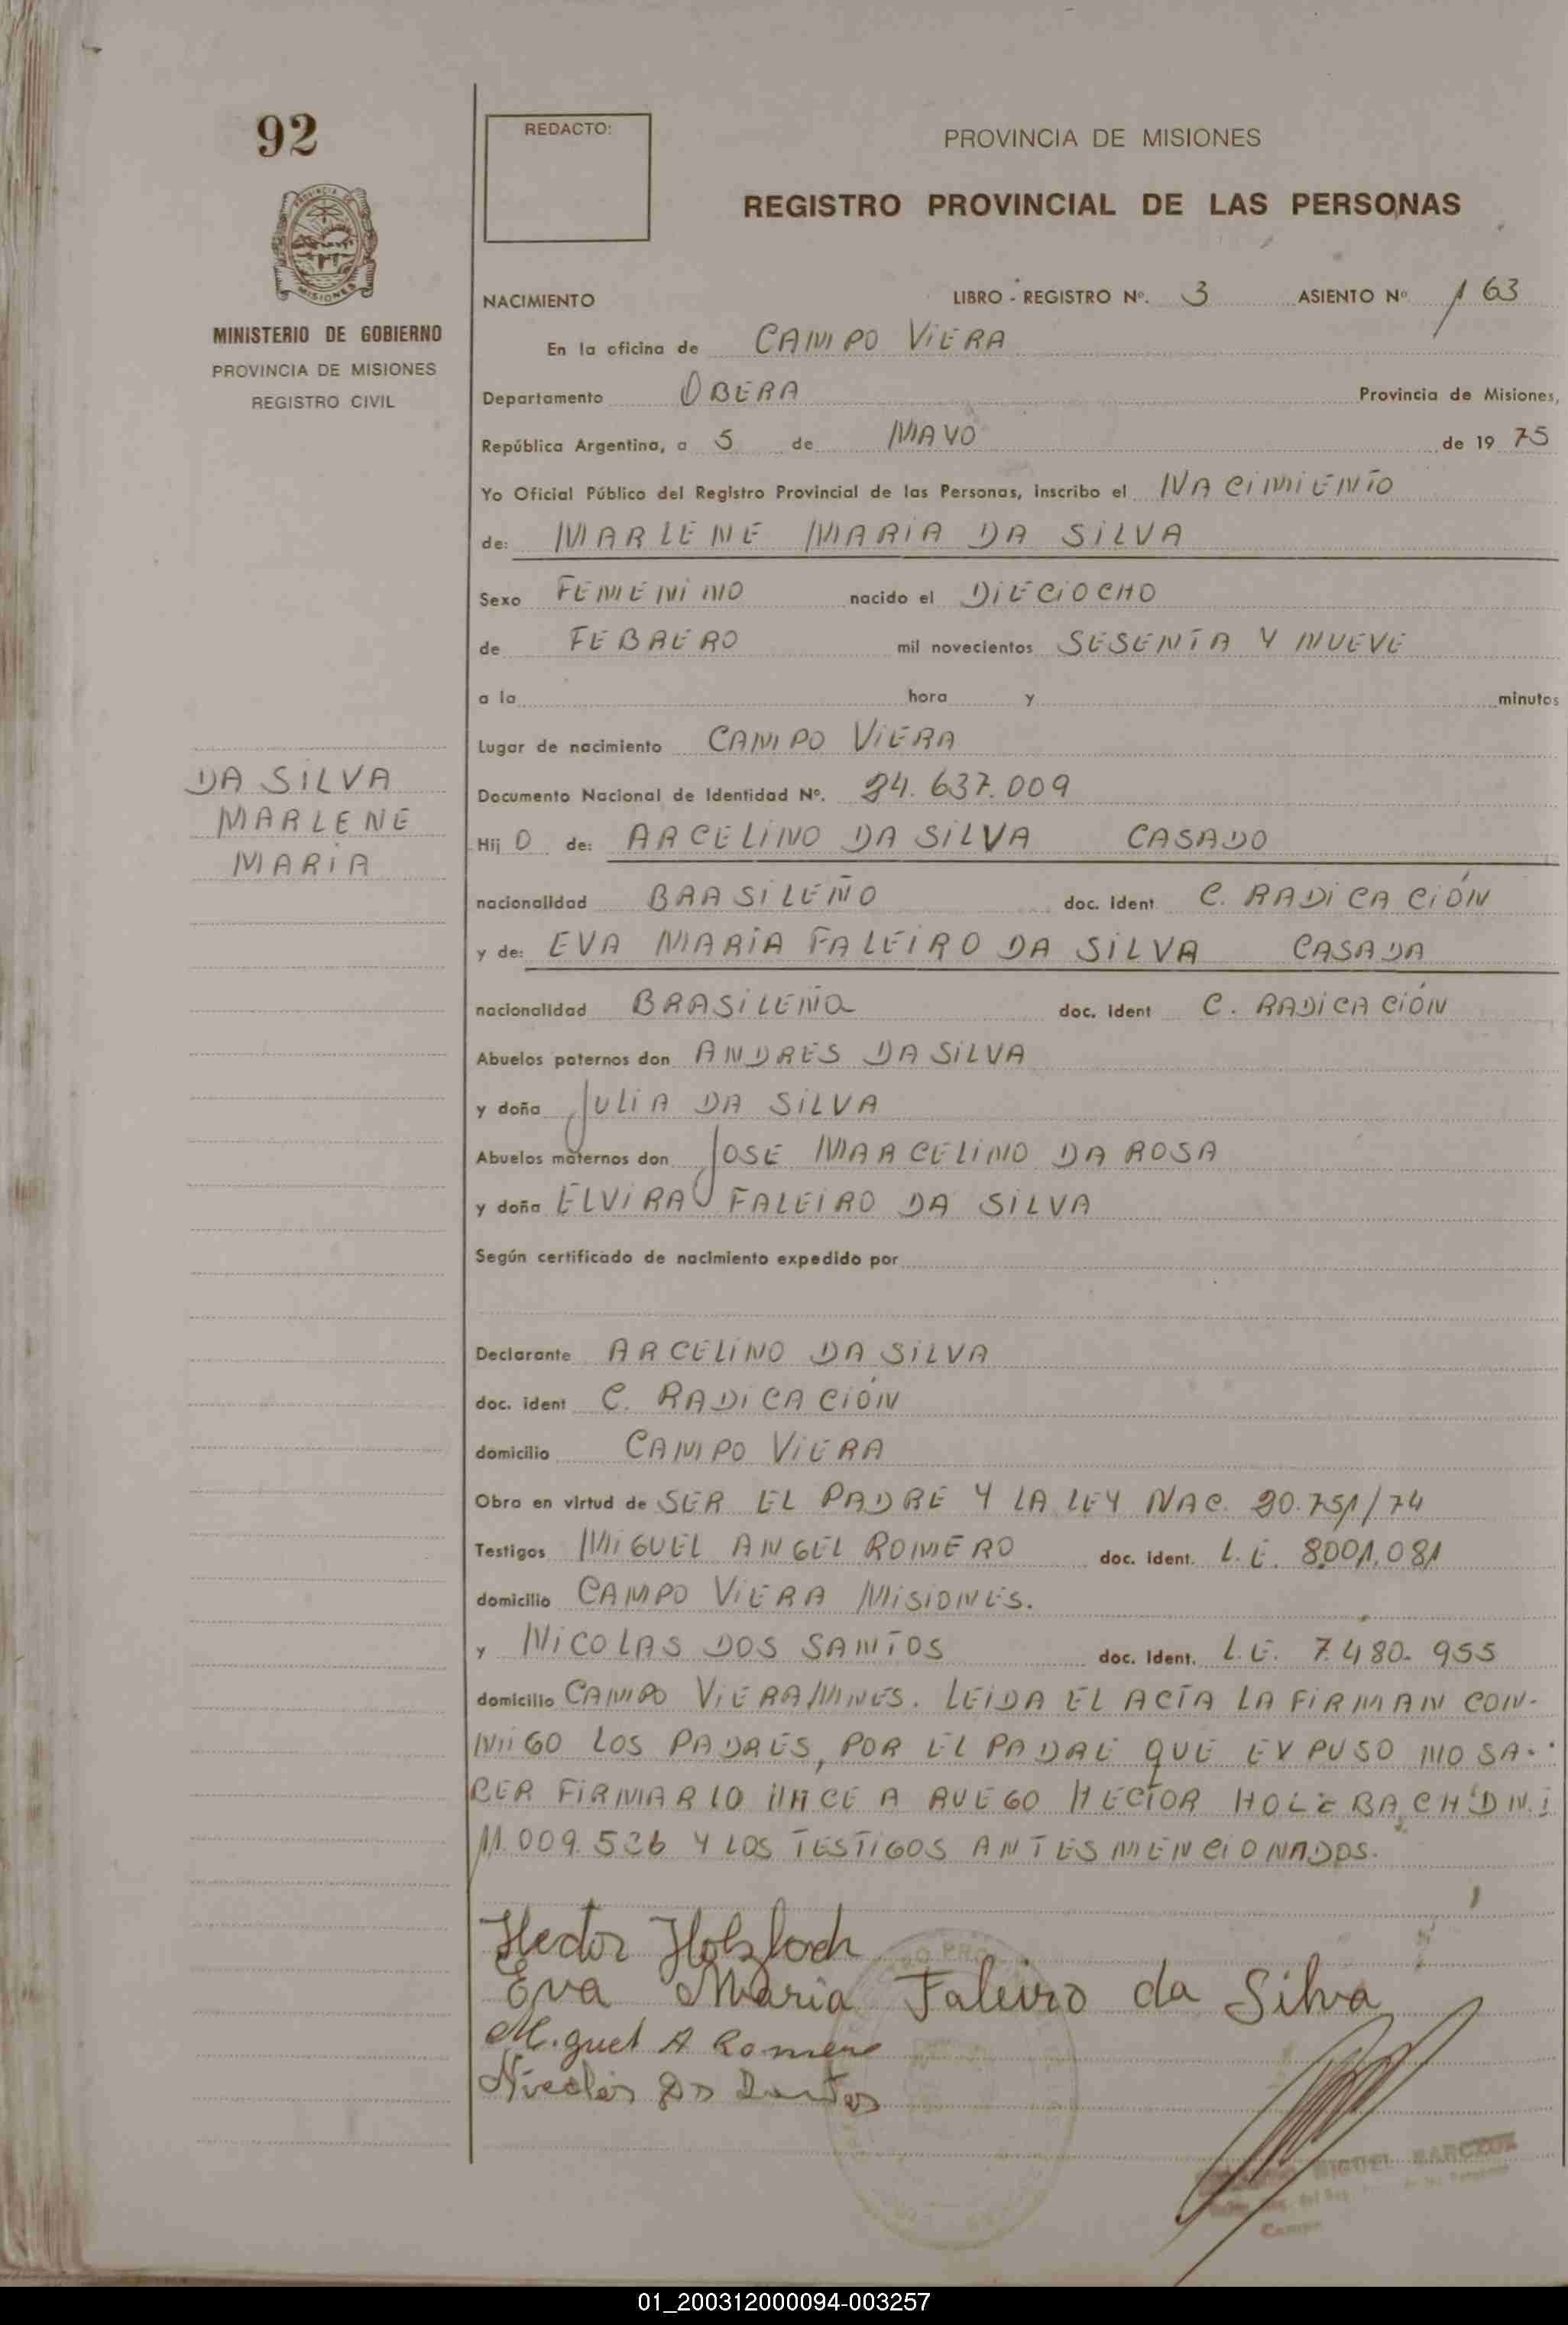 92
REDACTO:
PROVINCIA DE MISIONES
REGISTRO PROVINCIAL DE LAS PERSONAS
MISIONES
MINISTERIO DE GOBIERNO
PROVINCIA DE MISIONES
REGISTRO CIVIL
NACIMIENTO LIBRO - REGISTRO Nº. 3 ASIENTO Nº 163
En la oficina de CAMPO ViERA
Departamento OBERA Provincia de Misiones,
República Argentina, a 5 de MAYO de 19 75
Yo Oficial Público del Registro Provincial de las Personas, inscribo el NACiMiENTO
de: MARLENE MARiA DA SiLVA
Sexo FEMENiNO nacido el DiECiOCHO
de FEBRERO mil novecientos SESENTA Y NUEVE
a la hora y minutos
Lugar de nacimiento CAMPO ViERA
Documento Nacional de Identidad Nº. 24.637.009
Hij O de: ARCELiNO DA SiLVA CASADO
nacionalidad BRASiLEÑO doc. ident C. RADiCACiÓN
y de: EVA MARiA FALEiRO DA SiLVA CASADA
nacionalidad BRASiLEÑA doc. ident C. RADiCACiÓN
Abuelos paternos don ANDRES DA SiLVA
y doña JULiA DA SiLVA
Abuelos maternos don JOSE MARCELiNO DA ROSA
y doña ELViRA FALEiRO DA SiLVA
Según certificado de nacimiento expedido por
Declarante ARCELiNO DA SiLVA
doc. ident C. RADiCACiÓN
domicilio CAMPO ViERA
Obra en virtud de SER EL PADRE Y LA LEY NAC. 20.751/74
Testigos MiGUEL ANGEL ROMERO doc. ident. L.E. 8.001.081
domicilio CAMPO ViERA MiSiONES.
y NiCOLAS DOS SANTOS doc. ident. L.E. 7.480.955
domicilio CAMPO ViERA MNES. LEiDA EL ACTA LA FiRMAN CON-
MiGO LOS PADRES, POR EL PADRE QUE EXPUSO NO SA-
BER FiRMAR LO HACE A RUEGO HECTOR HOLZBACH D.N.i
11.009.526 Y LOS TESTiGOS ANTES MENCiONADOS.
DA SiLVA
MARLENE
MARiA
Hector Holzbach
Eva Maria Faleiro da Silva
Miguel A Romero
Nicolas Dos Santos
MIGUEL
Campo
01_200312000094-003257